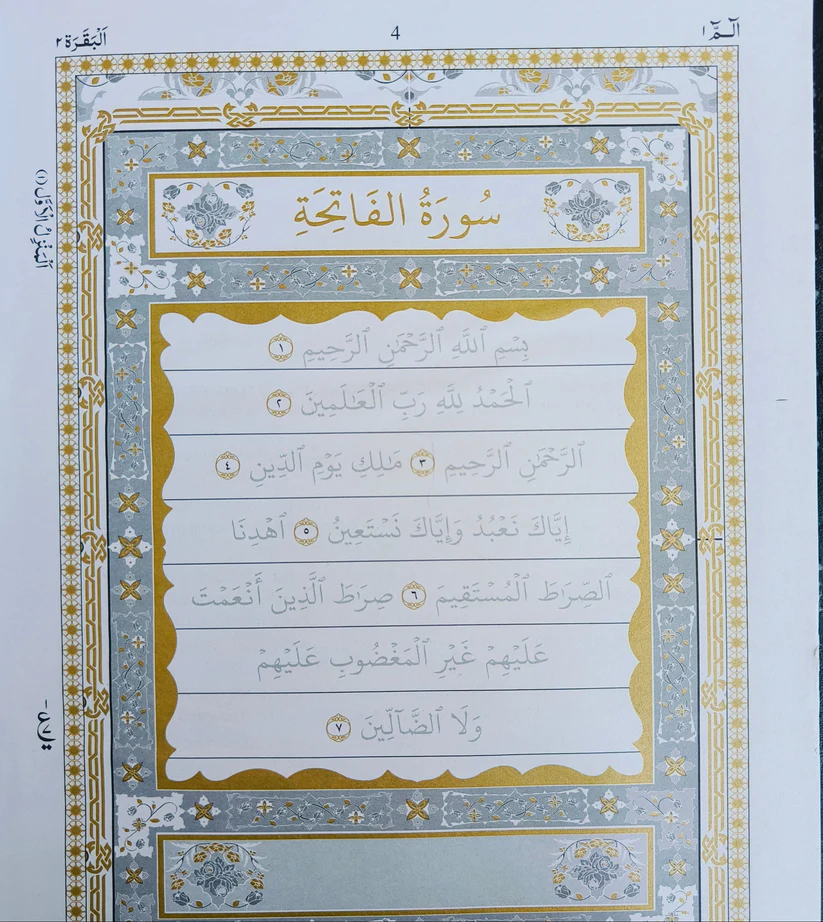 الٓـمّٓ ١
4
اَلْبَقَرَة ٢
اَلْمَنْزِلُ الْاَوَّلُ (١)
سُورَةُ الفَاتِحَةِ
بِسْمِ ٱللَّهِ ٱلرَّحْمَٰنِ ٱلرَّحِيمِ ١
ٱلْحَمْدُ لِلَّهِ رَبِّ ٱلْعَٰلَمِينَ ٢
ٱلرَّحْمَٰنِ ٱلرَّحِيمِ ٣ مَٰلِكِ يَوْمِ ٱلدِّينِ ٤
إِيَّاكَ نَعْبُدُ وَإِيَّاكَ نَسْتَعِينُ ٥ ٱهْدِنَا
ٱلصِّرَٰطَ ٱلْمُسْتَقِيمَ ٦ صِرَٰطَ ٱلَّذِينَ أَنْعَمْتَ
عَلَيْهِمْ غَيْرِ ٱلْمَغْضُوبِ عَلَيْهِمْ
وَلَا ٱلضَّآلِّينَ ٧